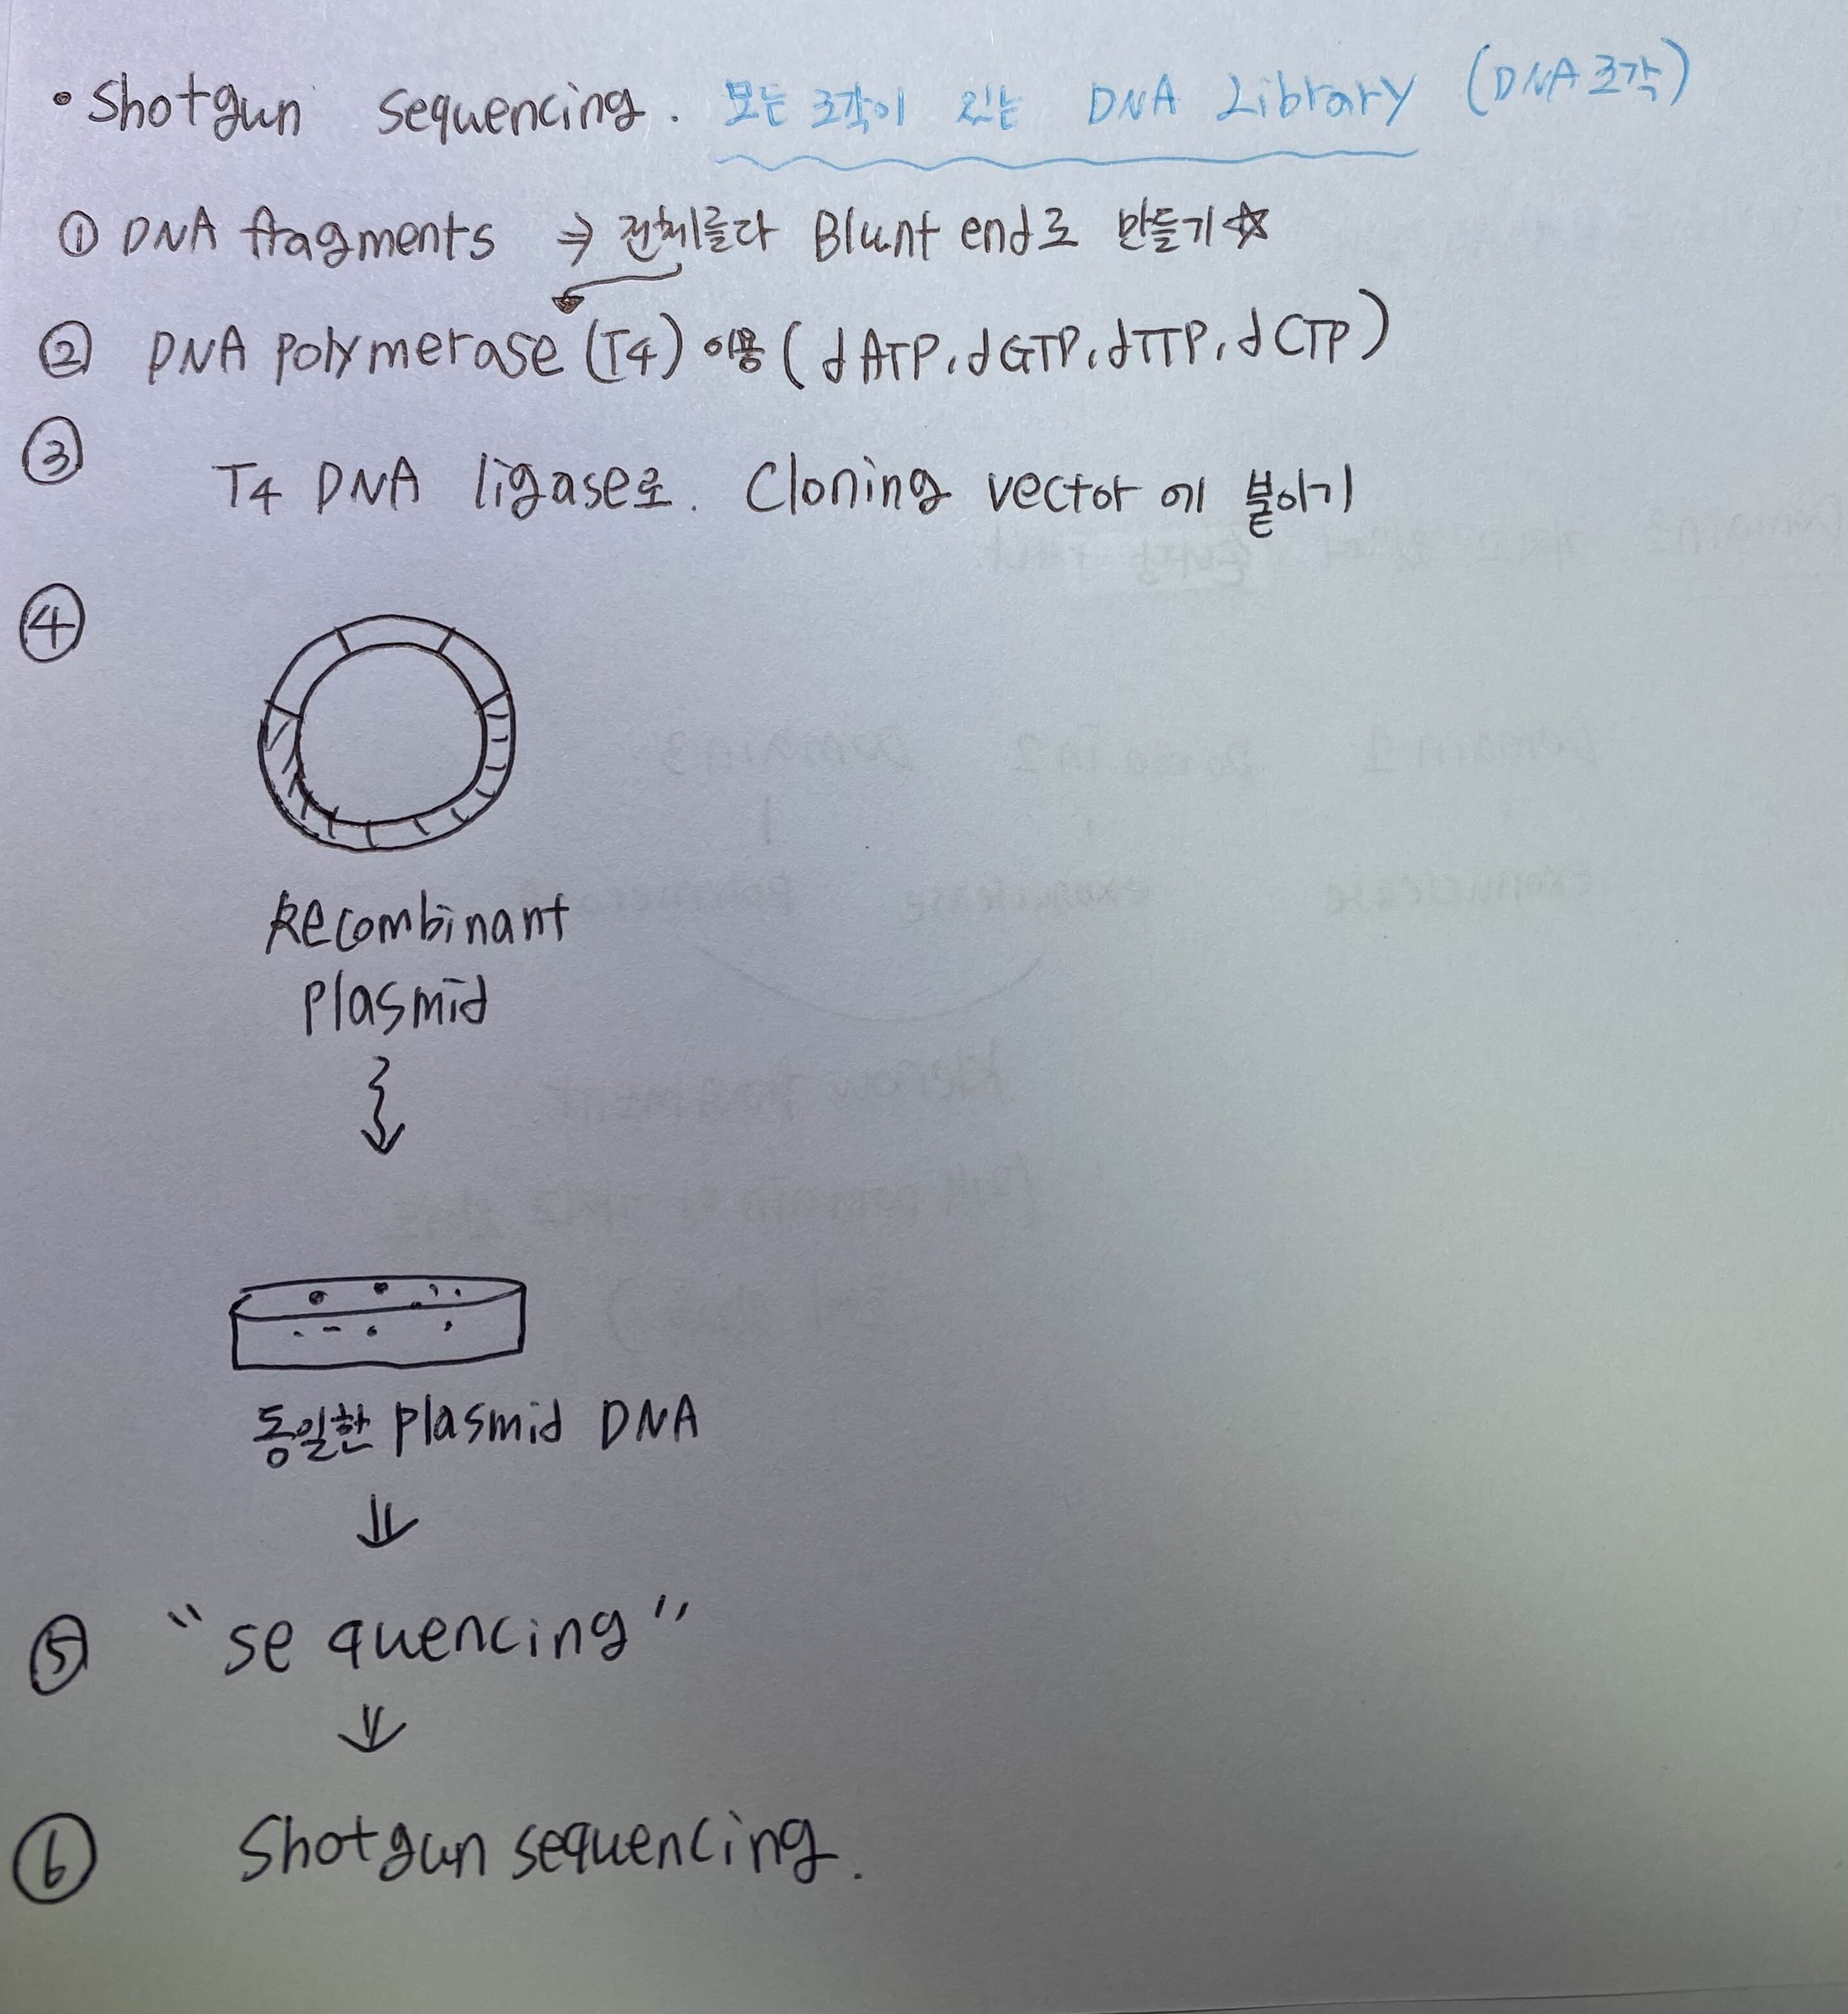 • Shotgun sequencing. 모든 조각이 있는 DNA Library (DNA 조각)
① DNA fragments ⇒ 전체를다 Blunt end로 만들기☆
② DNA polymerase (T4) 이용 ( dATP, dGTP, dTTP, dCTP )
③ T4 DNA ligase로. Cloning vector 에 붙이기
④
Recombinant
plasmid
동일한 plasmid DNA
⑤ "sequencing"
⑥ Shotgun sequencing.